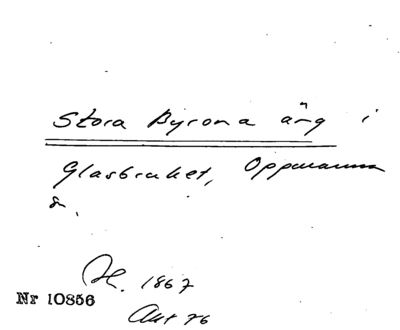 Stora Byrona äng i
Glasbruket, Oppmanna
sn.
H. 1867
Nr 10856
Akt 76